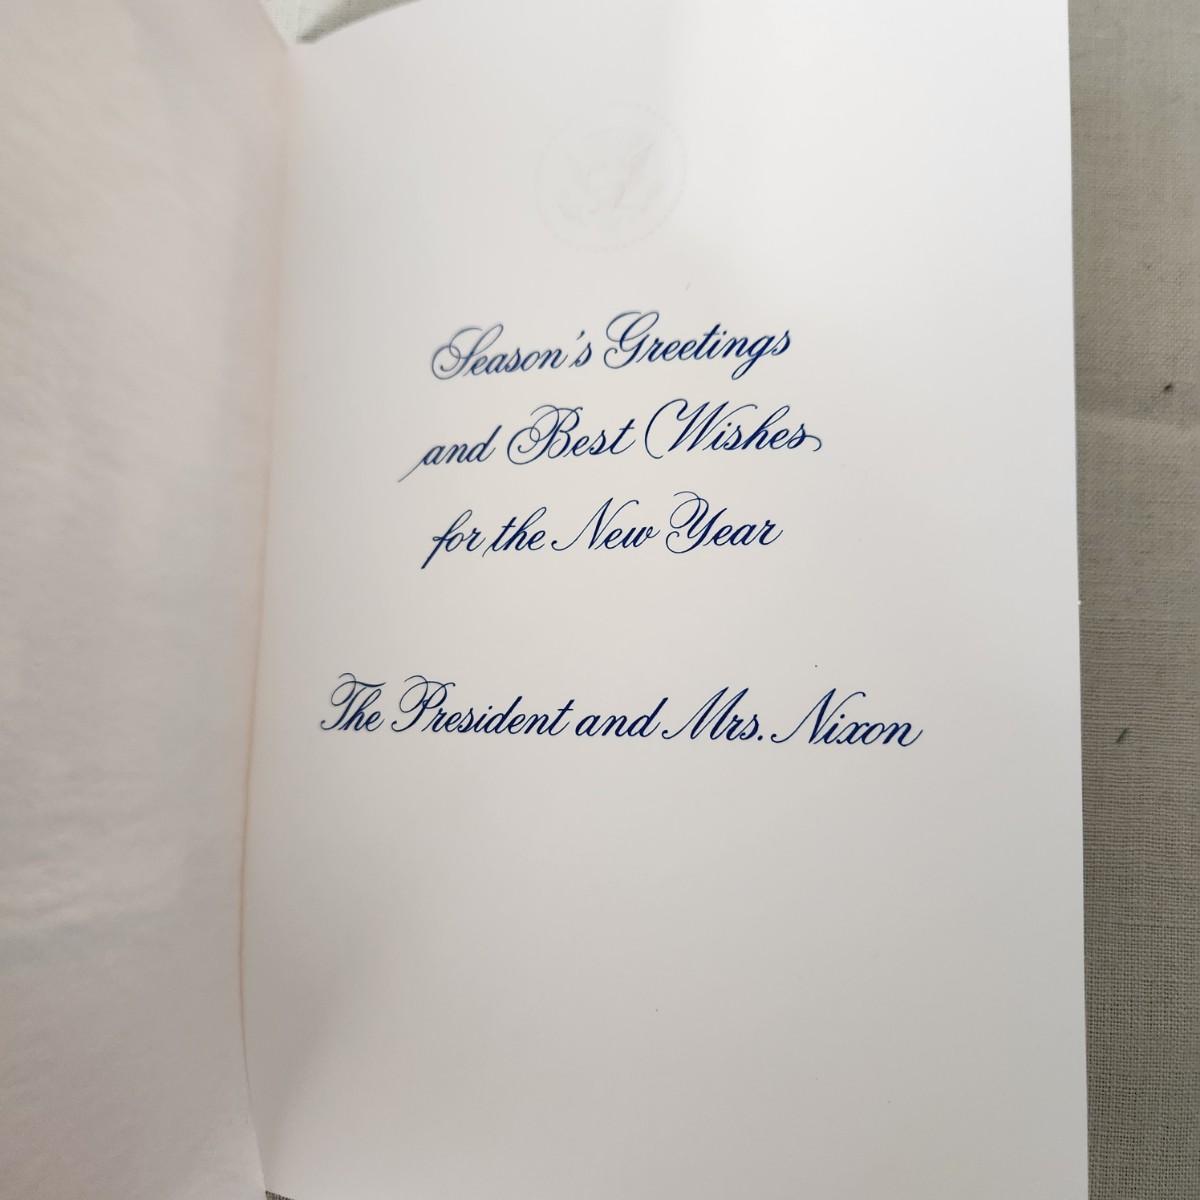 Season's Greetings
and Best Wishes
for the New Year
The President and Mrs. Nixon